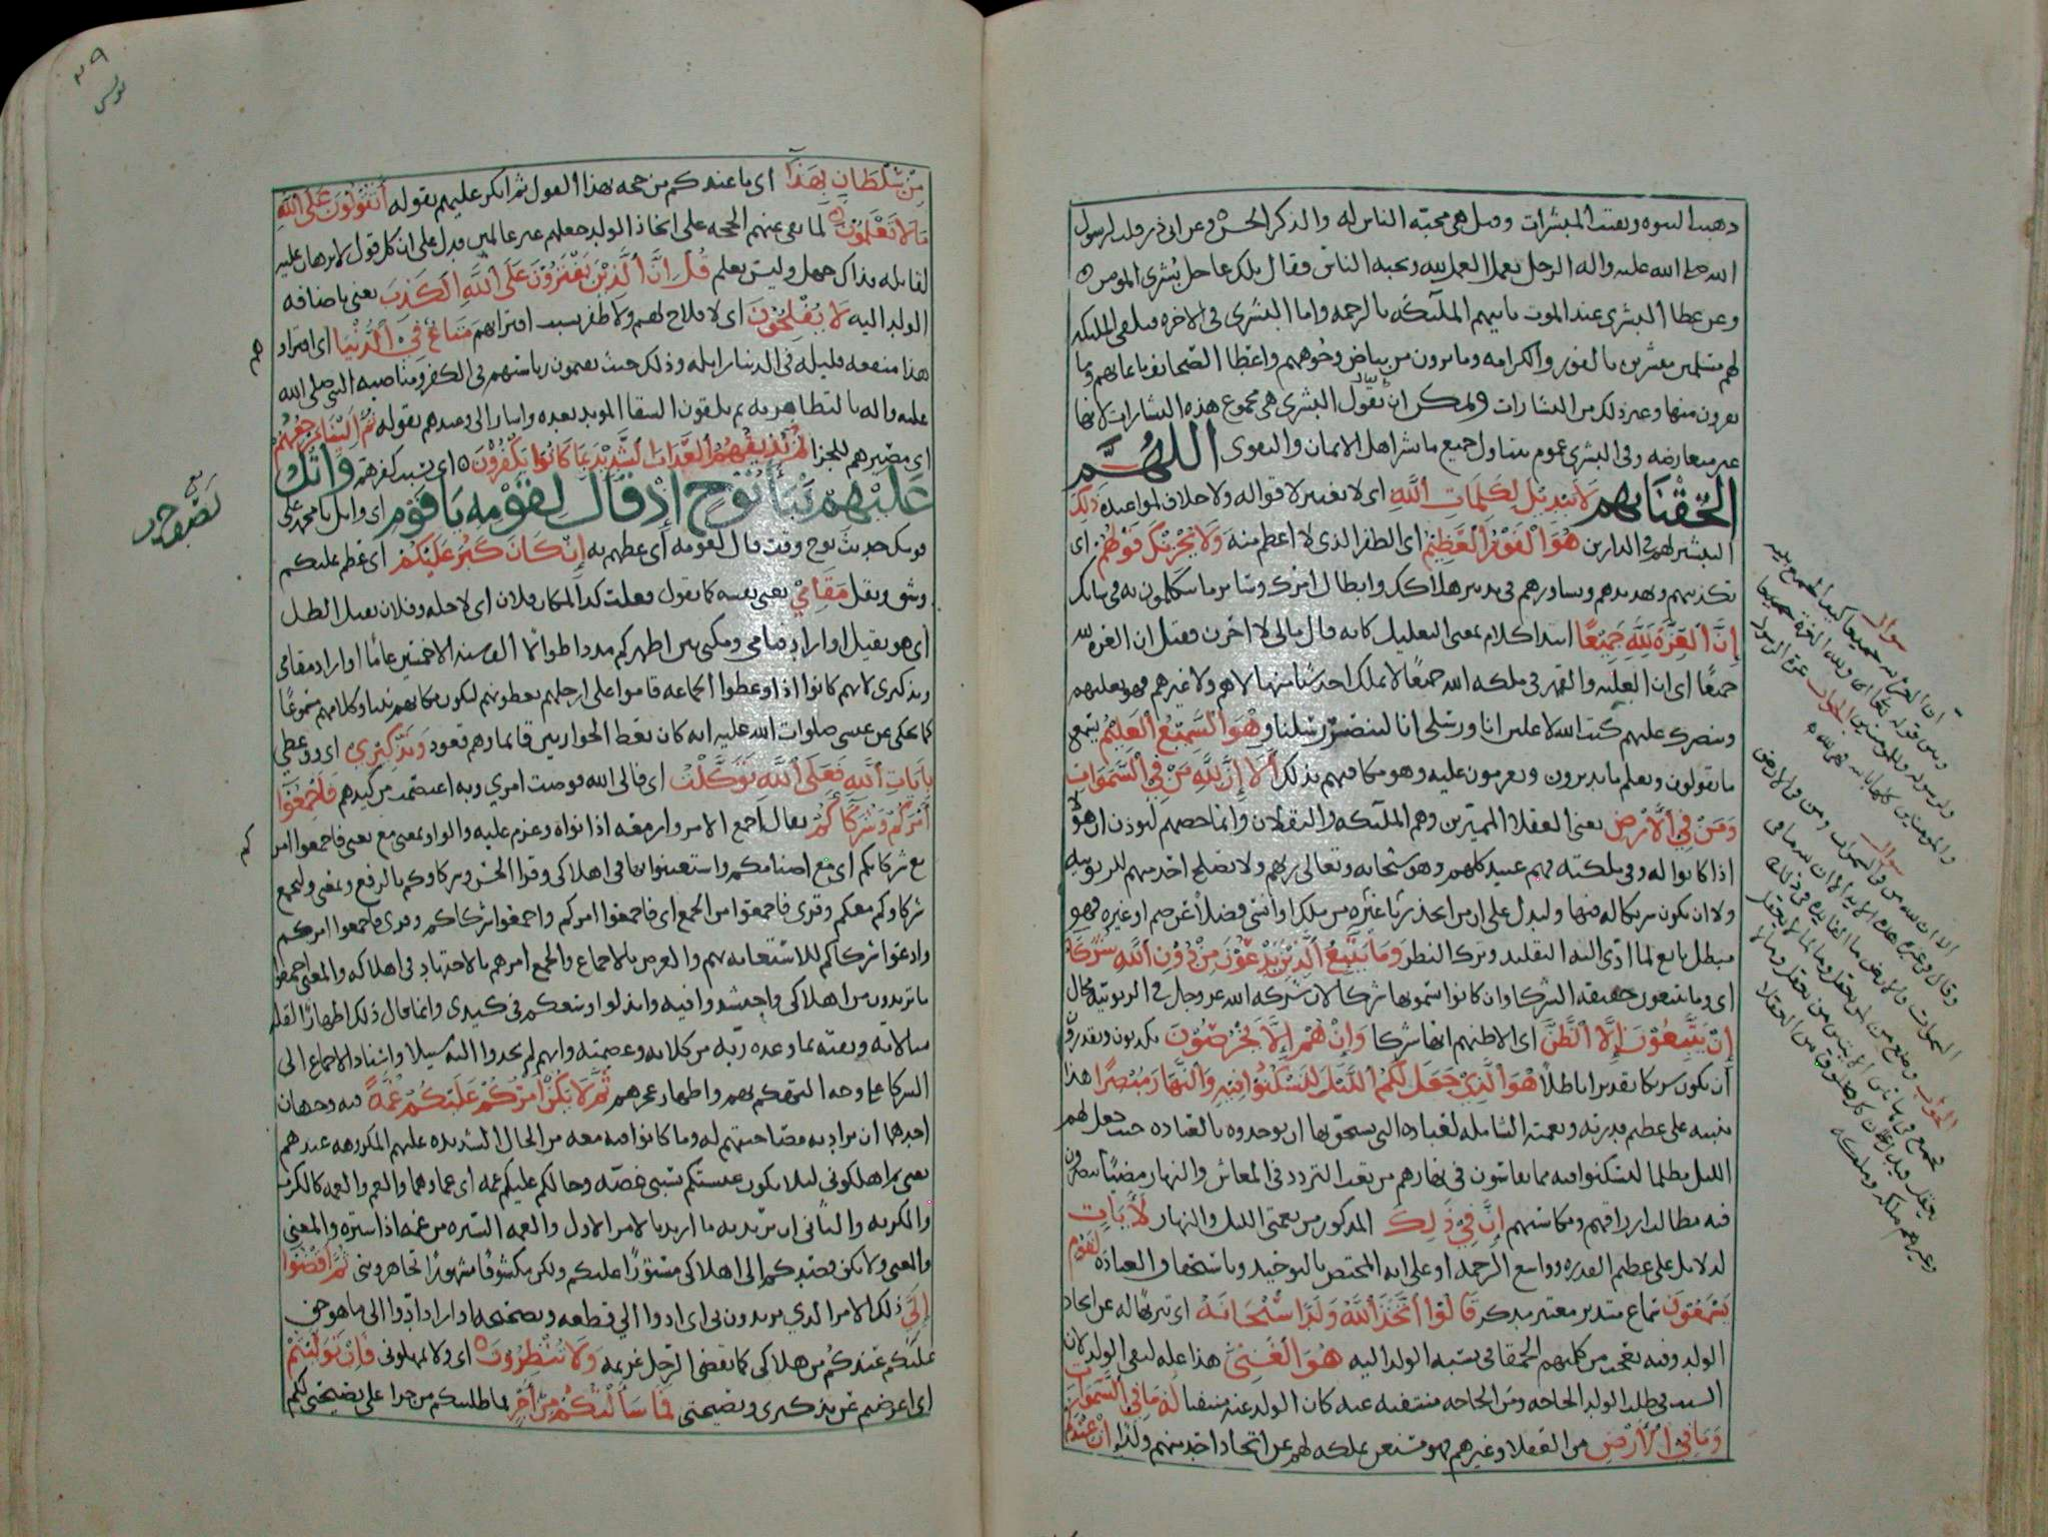 ذهبت النبوه وبقيت المبشرات وقيل هي محبة الناس له والذكر الحسن وعن ابي ذر قلت لرسول
الله صلى الله عليه واله الرجل يعمل العمل لله ويحبه الناس فقال تلك عاجل بشرى المومن
وعن عطا البشرى عند الموت تاتيهم الملائكه بالرحمه واما البشرى في الاخره فتلقي الملئكه
لهم مسلمين مبشرين بالفوز والكرامه وما يرون من بياض وجوههم واعطا الصحائف بايمانهم وما
يقرون منها وغير ذلك من البشارات ويمكن ان يقول البشرى هي مجموع هذه البشارات لانها
غير متعارضه وفي البشرى عموم يتناول جميع ما بشر اهل الايمان والتقوى اللهم
الحقنا بهم لا تبديل لكلمات الله اي لا تغيير لاقواله ولا اخلاف لمواعيده ذلك
التبشير لهم في الدارين هو الفوز العظيم اي الظفر الذي لا اعظم منه ولا يحزنك قولهم اي
تكذيبهم وتهديدهم وتشاورهم في تدبير هلاكك وابطال امرك وسائر ما يتكلمون به في شانك
ان العزة لله جميعا ابتدا كلام بمعنى التعليل كانه قال مالي لا احزن فقيل ان العزه لله
جميعا اي ان الغلبه والقهر في ملكه الله جميعا لا يملك احد شيا منها لا هم ولا غيرهم فهو يغلبهم
وينصرك عليهم كتب الله لاغلبن انا ورسلي انا لننصر رسلنا وهو السميع العليم يسمع
ما يقولون ويعلم ما يدبرون ويعزمون عليه وهو مكافيهم بذلك الا ان لله من في السموات
ومن في الارض يعني العقلا المميزين وهم الملئكه والثقلان وانما خصهم ليوذن ان هولا
اذا كانوا له وفي ملكته فهم عبيد كلهم وهو سبحانه وتعالى ربهم ولا يصلح احد منهم للربوبيه
ولا ان يكون شريكا له فيها وليدل على ان من اتخذ ربا غيره من ملك او انسي فضلا عن صنم او غيره فهو
مبطل تابع لما ادى اليه التقليد وترك النظر وما يتبع الذين يدعون من دون الله شركا
اي وما يتبعون حقيقه الشركا وان كانوا يسمونها شركا لان شركه الله عز وجل في الربوبيه محال
ان يتبعون الا الظن اي الا ظنهم انها شركا وان هم الا يخرصون يكذبون ويقدرون
ان يكون شريكا تقديرا باطلا هو الذي جعل لكم الليل لتسكنوا فيه والنهار مبصرا هذا
تنبيه على عظيم قدرته ونعمته الشامله لعباده التي يستحق بها ان يوحدوه بالعباده حيث جعل لهم
الليل مظلما ليسكنوا فيه مما يقاسون في نهارهم من تعب التردد في المعاش والنهار مضيا يبصرون
فيه مطالب ارزاقهم ومكاسبهم ان في ذلك المذكور من نعمتي الليل والنهار لايات
لدلايل على عظيم القدره وواسع الرحمه او على انه المختص بالتوحيد وباستحقاق العباده لقوم
يسمعون سماع متدبر معتبر متذكر قالوا اتخذ الله ولدا سبحانه اي تنزيها له عن اتخاذ
الولد وفيه تعجب من كلمتهم الحمقا في نسبة الولد اليه هو الغني هذا عله لنفي الولد لان
السبب في طلب الولد الحاجه ومن الحاجه منتفيه عنه كان الولد عنه منتفيا له ما في السموات
وما في الارض من العقلا وغيرهم فهو مستغن بملكه لهم عن اتخاذ احد منهم ولدا ان عندكم
سوال
ان العزة لله جميعا كيف الجمع بينه
وبين قوله تعالى ولله العزة
ولرسوله وللمومنين الجواب عزة الرسول
والمومنين كلها بالله فهي لله
سوال
الا ان لله من في السموات ومن في الارض
الجواب
٣٩
يونس
من سلطان بهذا اي ما عندكم من حجه بهذا القول ثم انكر عليهم بقوله اتقولون على الله
ما لا تعلمون لما نفى عنهم الحجه على اتخاذ الولد جعلهم غير عالمين فدل على ان كل قول لا برهان عليه
لقايله فذاك جهل وليس بعلم قل ان الذين يفترون على الله الكذب يعني باضافه
الولد اليه لا يفلحون اي لا فلاح لهم ولا ظفر بسبب افترائهم متاع في الدنيا اي افتراوهم
هذا منفعه قليله في الدنيا زايله وذلك حيث يقيمون رياستهم في الكفر ومناصبه النبي صلى الله
عليه واله بالتظاهر به ثم يلقون الشقا الموبد بعده واشار الى وعيدهم بقوله ثم الينا مرجعهم
اي مصيرهم للجزا ثم نذيقهم العذاب الشديد بما كانوا يكفرون اي بسبب كفرهم واتل
عليهم نبأ نوح اذ قال لقومه يا قوم اي واتل يا محمد على
قومك حديث نوح وقت قال لقومه اي عظهم به ان كان كبر عليكم اي عظم عليكم
وشق وثقل مقامي يعني نفسه كما تقول فعلت كذا لمكان فلان اي لاجله وفلان ثقيل الظل
اي هو ثقيل او اراد قيامي ومكثي بين اظهركم مددا طوالا الف سنه الا خمسين عاما او اراد مقامي
وتذكيري لانهم كانوا اذا وعظوا الجماعه قاموا على ارجلهم يعظونهم ليكون مكانهم بينا وكلامهم مسموعا
كما يحكى عن عيسى صلوات الله عليه انه كان يعظ الحواريين قائما وهم قعود وتذكيري اي ووعظي
بايات الله فعلى الله توكلت اي فالى الله فوضت امري وبه اعتصمت من كيدهم فاجمعوا
امركم وشركاكم يقال اجمع الامر وازمعه اذا نواه وعزم عليه والواو بمعنى مع يعني فاجمعوا امركم
مع شركائكم اي مع اصنامكم واستعينوا بها في اهلاكي وقرا الحسن وشركاوكم بالرفع وبمعنى وليجمع
شركاوكم معكم وقرى فاجمعوا من الجمع اي فاجمعوا امركم واجمعوا شركاكم وقرى فاجمعوا امركم
وادعوا شركاكم للاستعانه بهم والغرض بالاجماع والجمع امرهم بالاجتهاد في اهلاكه والمعنى اجمعوا
ما تريدون من اهلاكي واحتشدوا فيه وابذلوا وسعكم في كيدي وانما قال ذلك اظهارا لقله
مبالاته وثقته بما وعده ربه من كلائه وعصمته وانهم لم يجدوا اليه سبيلا واسناد الاجماع الى
الشركا على وجه التهكم بهم واظهار عجزهم ثم لا يكن امركم عليكم غمة فيه وجهان
احدهما ان يراد به مصاحبتهم له وما كانوا فيه معه من الحال الشديده عليهم المكروهه عندهم
يعني ثم اهلكوني ليلا يكون عيشكم بسببي غصه وحالكم عليكم غمه اي غما وهما والغم والغمه كالكرب
والكربه والثاني ان يريد به ما اريد بالامر الاول والغمه السترة من غمه اذا ستره والمعنى
والمعنى ولا يكن قصدكم الى اهلاكي مستورا عليكم ولكن مكشوفا مشهورا تجاهرونني ثم اقضوا
الي ذلك الامر الذي تريدون بي اي ادوا الي قطعه وتصحيحه او اراد ادوا الي ما هو حق
عليكم عندكم من هلاكي كما يقضي الرجل غريمه ولا تنظرون اي ولا تمهلوني فان توليتم
اي اعرضتم عن تذكيري ونصيحتي فما سالتكم من اجر لما طلبتكم من جزا على نصيحتي لكم
هم
كم